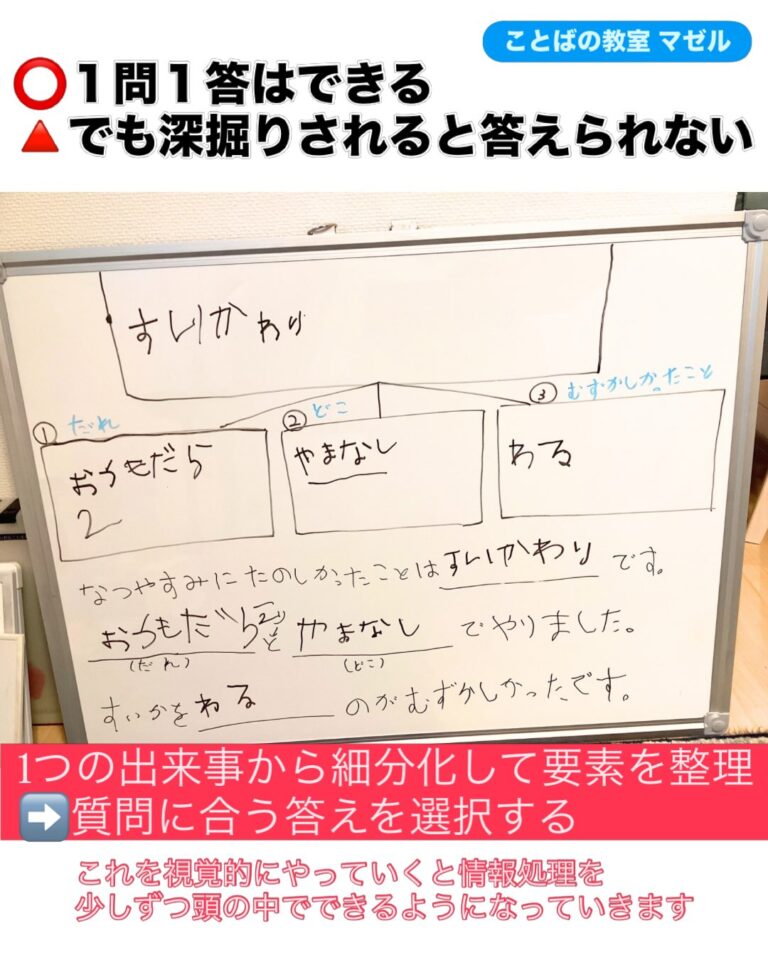 ことばの教室 マゼル
⭕１問１答はできる
🔺でも深掘りされると答えられない
すいかわり
① だれ
② どこ
③ むずかしかったこと
おともだち
2
やまなし
わる
なつやすみにたのしかったことは すいかわり です。
おともだち2と やまなし でやりました。
(だれ) (どこ)
すいかを わる のがむずかしかったです。
1つの出来事から細分化して要素を整理
➡️質問に合う答えを選択する
これを視覚的にやっていくと情報処理を
少しずつ頭の中でできるようになっていきます